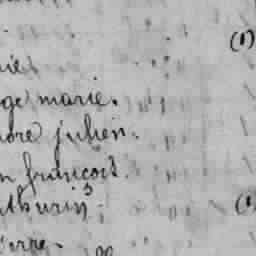 (1)
ie
ge marie.
ore julien.
n francois
thurin
ierre.